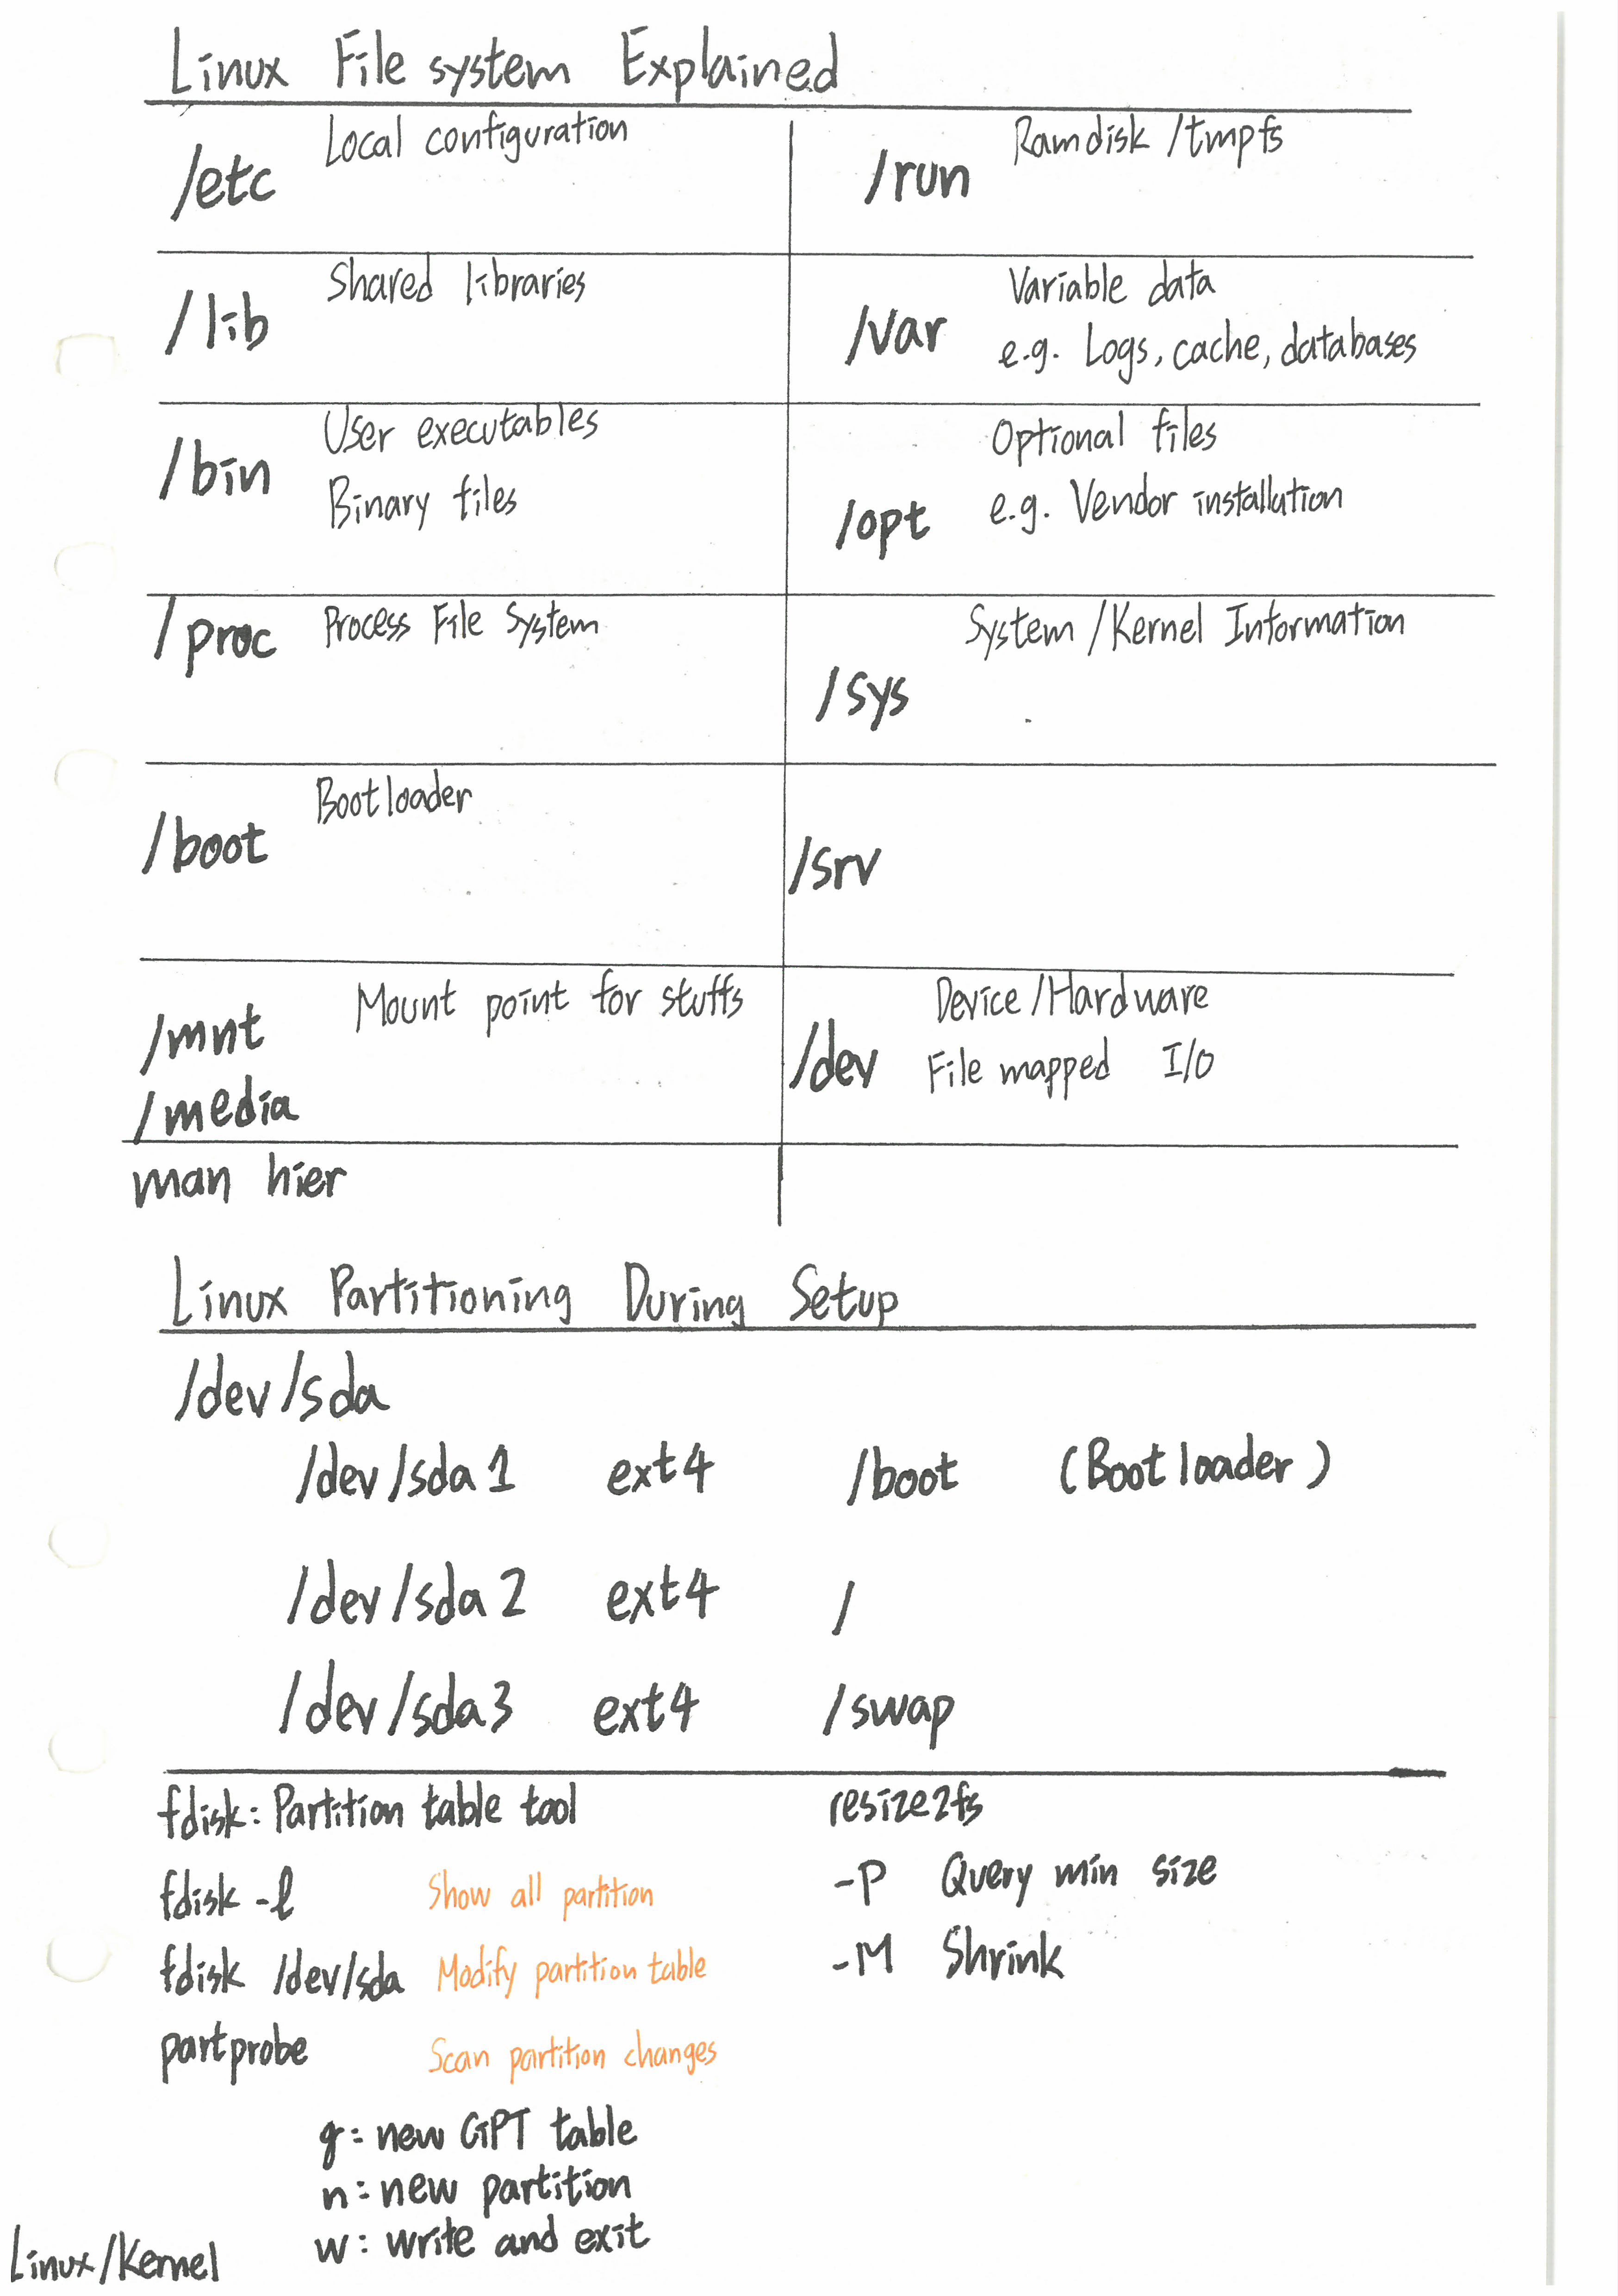 Linux File system Explained
/etc Local configuration
/run Ramdisk /tmpfs
/lib Shared libraries
/var Variable data
e.g. Logs, cache, databases
/bin User executables
Binary files
/opt Optional files
e.g. Vendor installution
/proc Process File System
/sys System /Kernel Information
/boot Bootloader
/srv
/mnt Mount point for stuffs
/media
/dev Device /Hardware
File mapped I/O
man hier
Linux Partitioning During Setup
/dev/sda
/dev/sda1 ext4 /boot (Bootloader)
/dev/sda2 ext4 /
/dev/sda3 ext4 /swap
fdisk: Partition table tool
fdisk -l Show all partition
fdisk /dev/sda Modify partition table
partprobe Scan partition changes
g = new GPT table
n = new partition
w : write and exit
resize2fs
-P Query min size
-M Shrink
Linux/Kernel